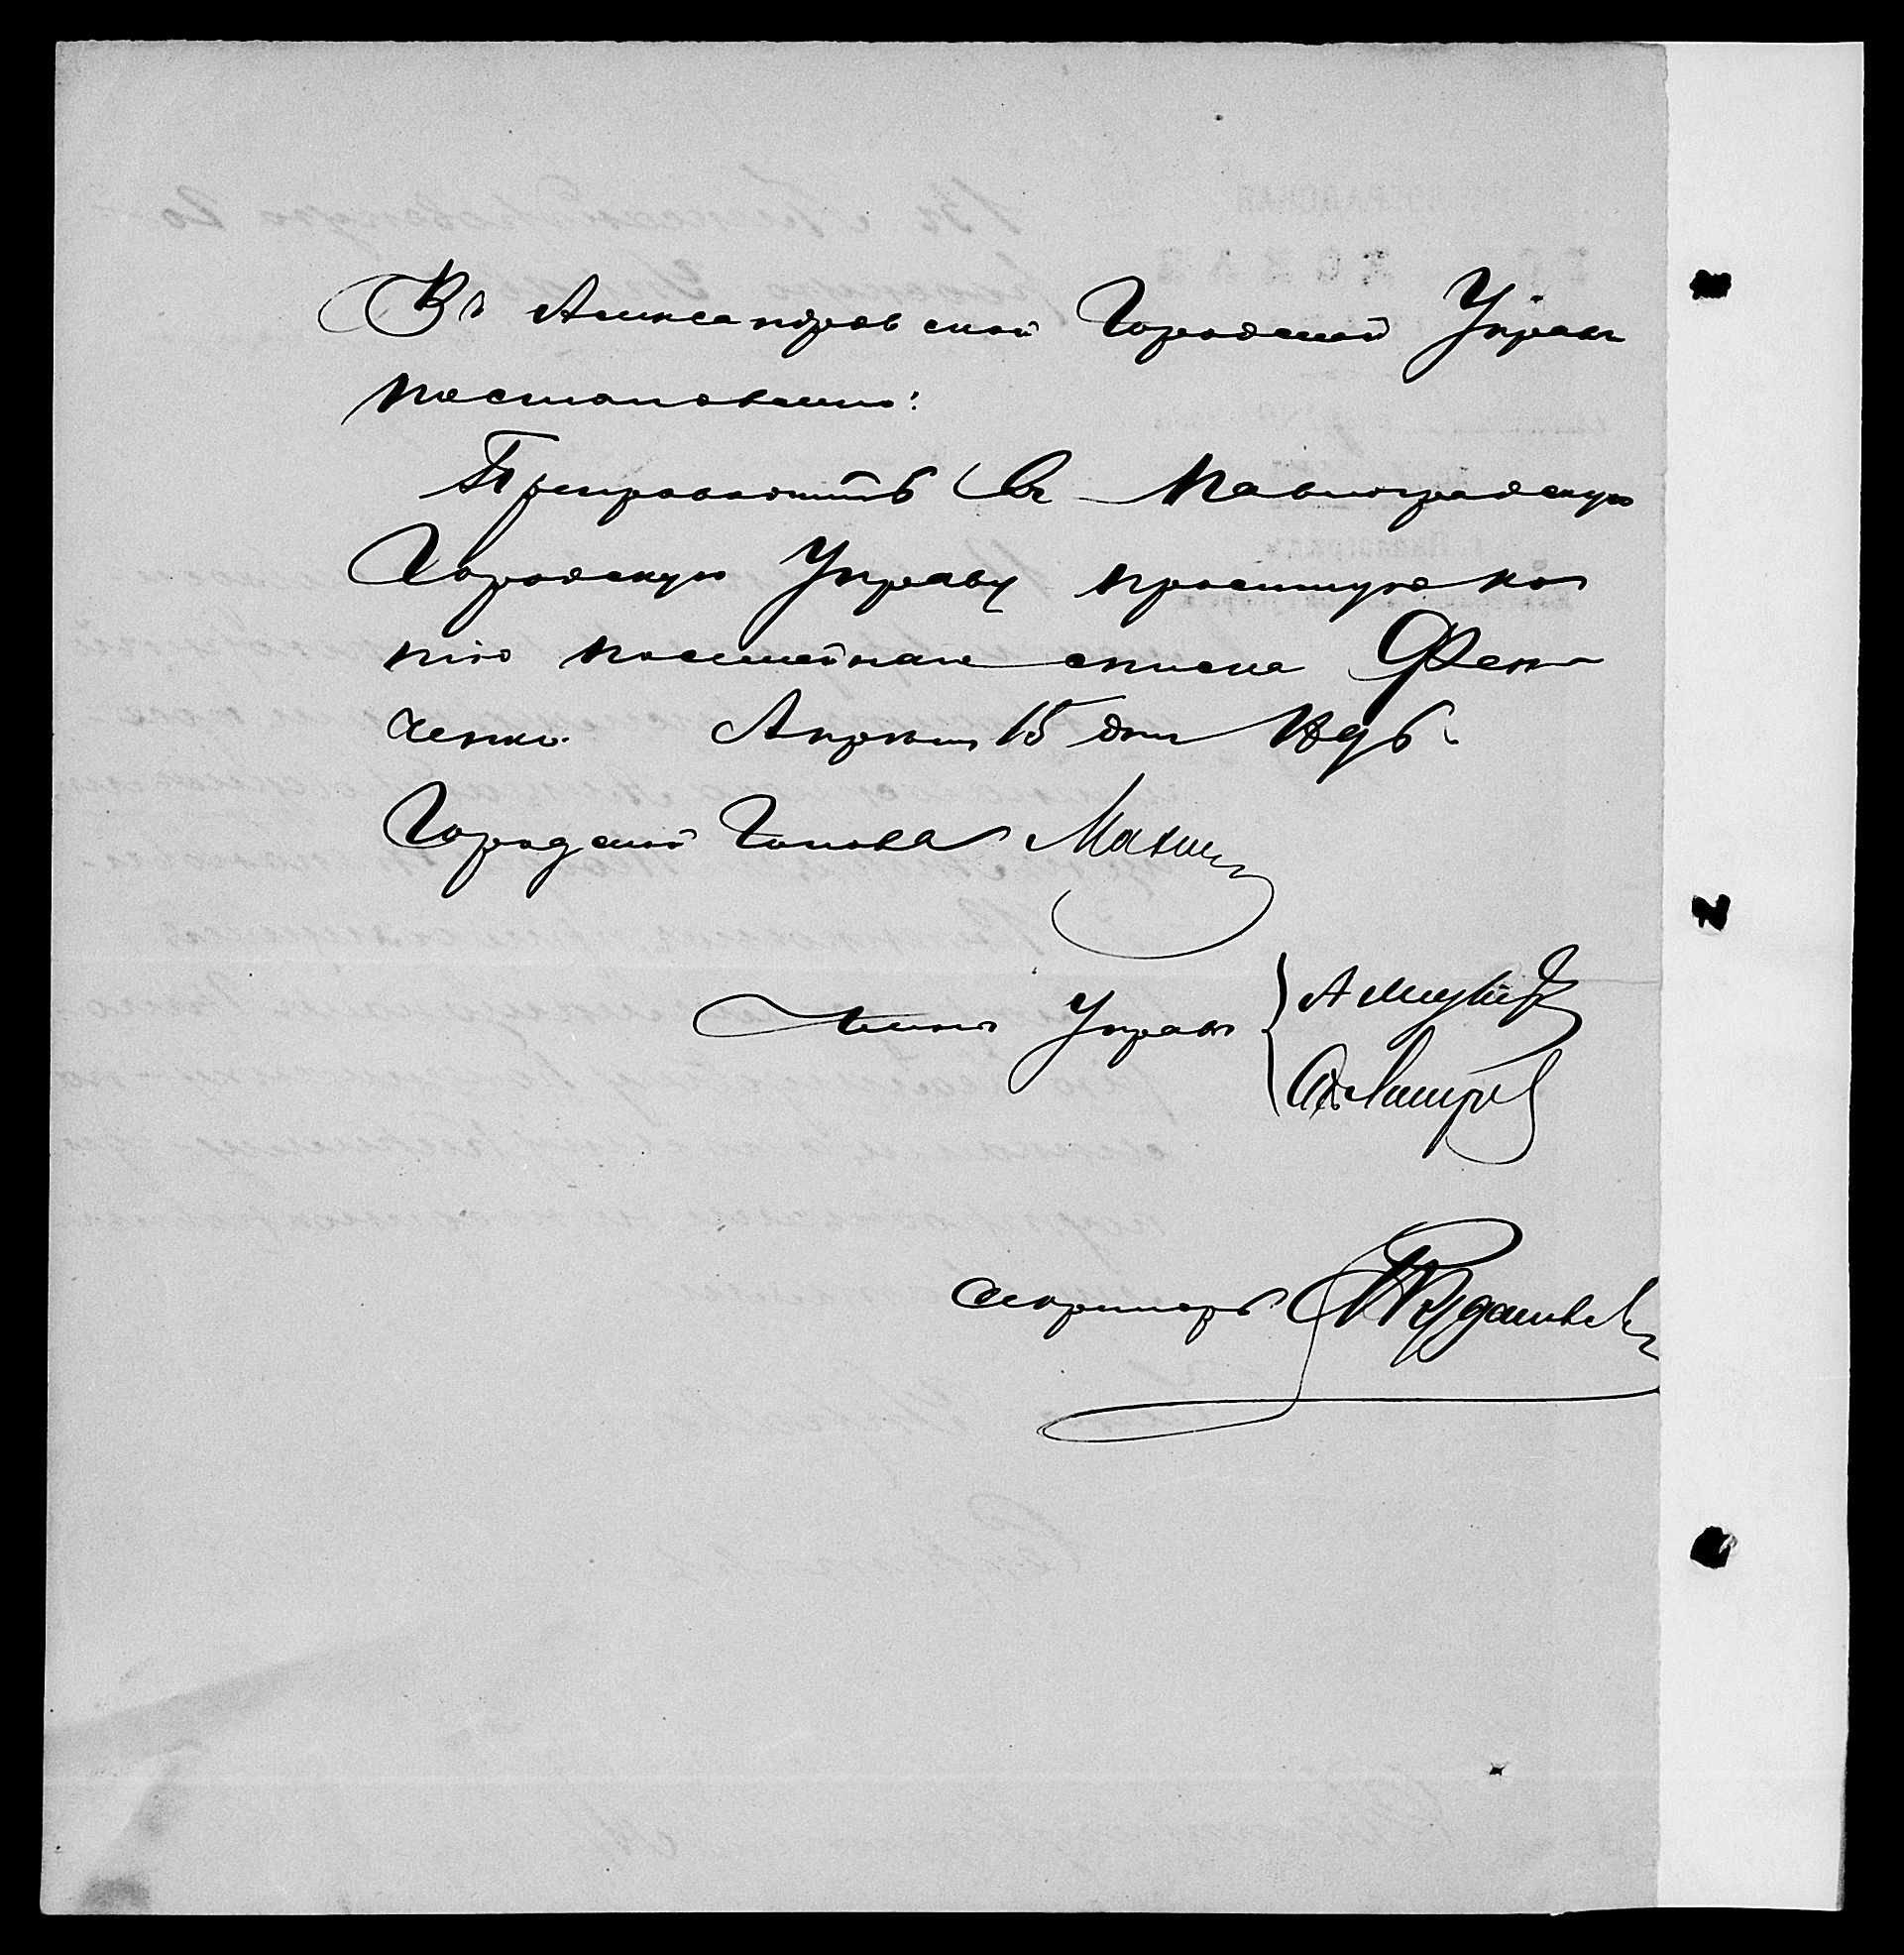 Въ Александровской Городской Управѣ
постановлено:
Препроводить въ Павлоградскую
Городскую Управу простую ко
пію посемейнаго списка Фен
ченко. Апрѣля 15 дня 1896.
Городской Голова Махин
Члены Управы
Секретарь